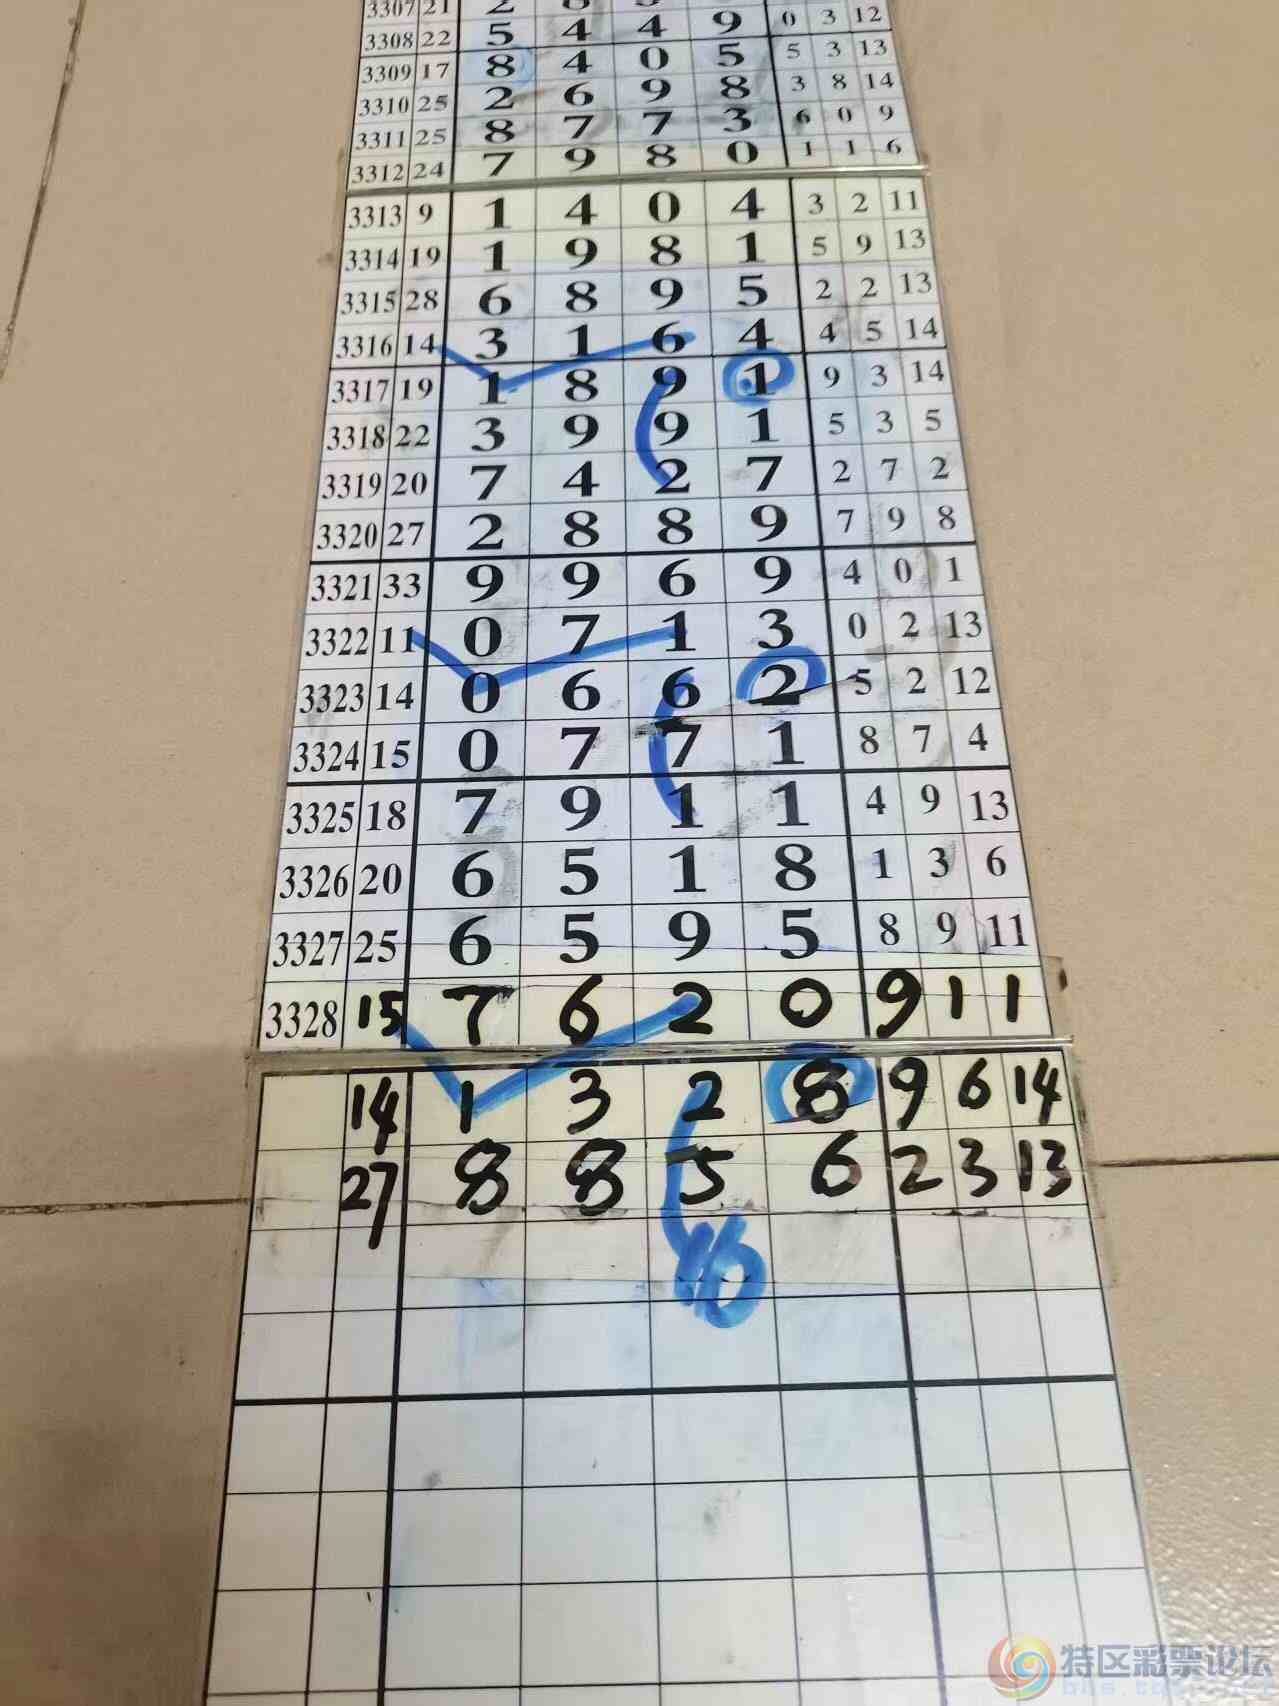 3307 21 2
3308 22 5 4 4 9 0 3 12
3309 17 8 4 0 5 5 3 13
3310 25 2 6 9 8 3 8 14
3311 25 8 7 7 3 6 0 9
3312 24 7 9 8 0 1 1 6
3313 9 1 4 0 4 3 2 11
3314 19 1 9 8 1 5 9 13
3315 28 6 8 9 5 2 2 13
3316 14 3 1 6 4 4 5 14
3317 19 1 8 9 1 9 3 14
3318 22 3 9 9 1 5 3 5
3319 20 7 4 2 7 2 7 2
3320 27 2 8 8 9 7 9 8
3321 33 9 9 6 9 4 0 1
3322 11 0 7 1 3 0 2 13
3323 14 0 6 6 2 5 2 12
3324 15 0 7 7 1 8 7 4
3325 18 7 9 1 1 4 9 13
3326 20 6 5 1 8 1 3 6
3327 25 6 5 9 5 8 9 11
3328 15 7 6 2 0 9 1 1
14 1 3 2 8 9 6 14
27 8 8 5 6 2 3 13
特区彩票论坛